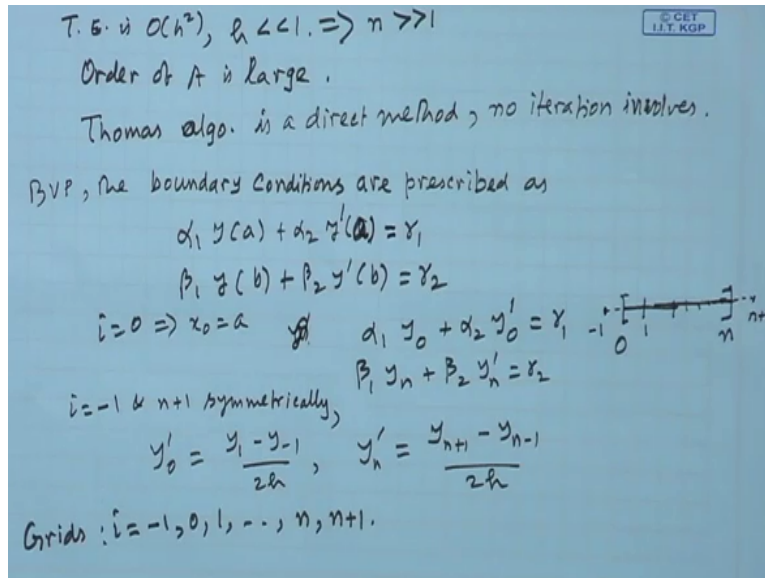 T. E. is O(h²), h << 1. => n >> 1
© CET
I.I.T. KGP
Order of A is large.
Thomas algo. is a direct method, no iteration involves.
BVP, the boundary conditions are prescribed as
α₁ y(a) + α₂ y'(a) = γ₁
β₁ y(b) + β₂ y'(b) = γ₂
i=0 => x₀ = a α₁ y₀ + α₂ y₀' = γ₁
-1 0 1 n n+1
β₁ yₙ + β₂ yₙ' = γ₂
i=-1 & n+1 symmetrically,
y₀' = (y₁ - y₋₁)/2h, yₙ' = (yₙ₊₁ - yₙ₋₁)/2h
Grids : i = -1, 0, 1, .., n, n+1.